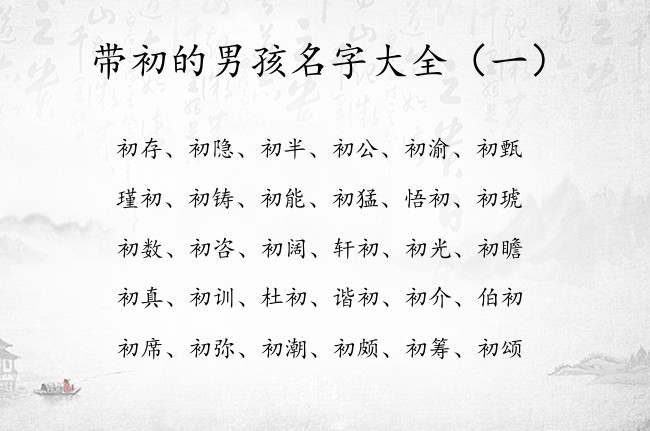 带初的男孩名字大全（一）
初存、初隐、初半、初公、初渝、初甄
瑾初、初铸、初能、初猛、悟初、初琥
初数、初咨、初阔、轩初、初光、初瞻
初真、初训、杜初、谐初、初介、伯初
初席、初弥、初潮、初颇、初筹、初颂